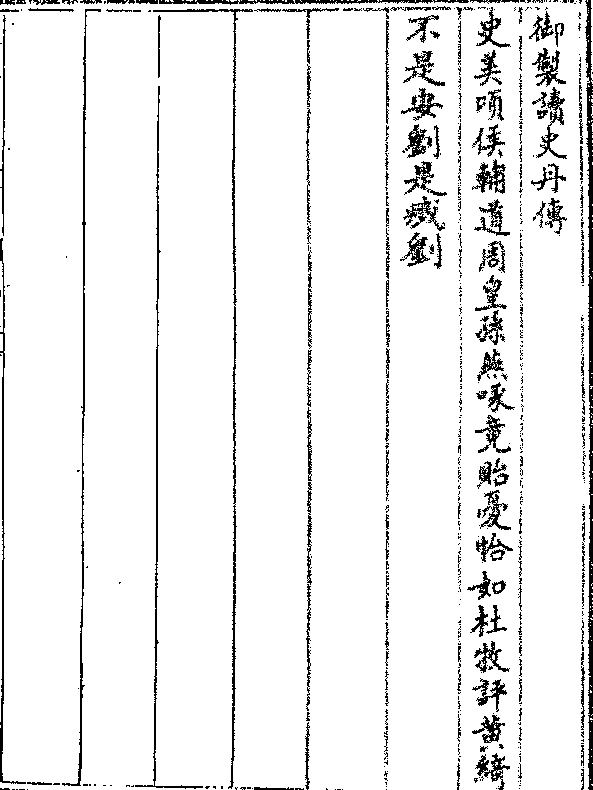 御製讀史丹傳
史美頊侯輔道周皇孫燕啄竟貽憂恰如杜牧評黃綺
不是安劉是㓕劉